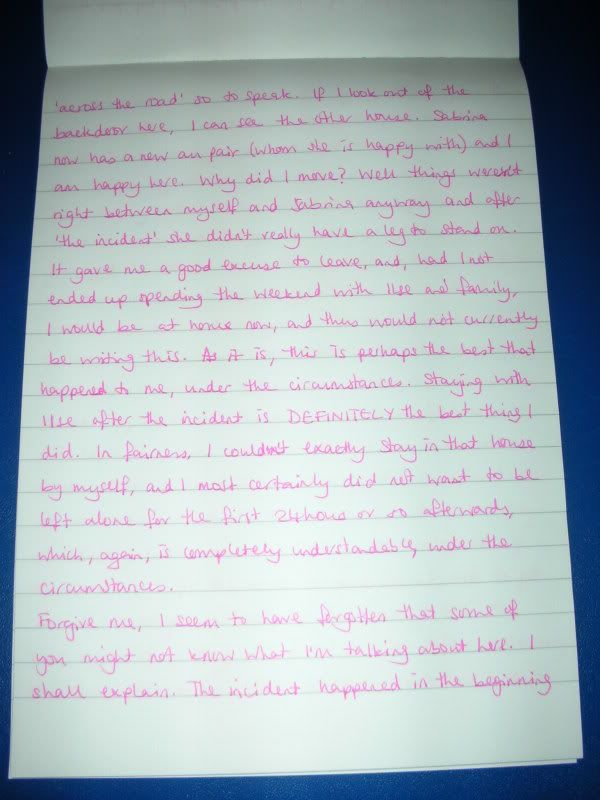 'across the road' so to speak. If I look out of the
backdoor here, I can see the other house. Sabrina
now has a new au pair (whom she is happy with) and I
am happy here. Why did I move? Well things weren't
right between myself and Sabrina anyway and after
'the incident' she didn't really have a leg to stand on.
It gave me a good excuse to leave, and, had I not
ended up spending the weekend with Ilse and family,
I would be at home now, and thus would not currently
be writing this. As it is, this is perhaps the best that
happened to me, under the circumstances. Staying with
Ilse after the incident is DEFINITELY the best thing I
did. In fairness, I couldn't exactly stay in that house
by myself, and I most certainly did not want to be
left alone for the first 24hours or so afterwards,
which, again, is completely understandable, under the
circumstances.
Forgive me, I seem to have forgotten that some of
you might not know what I'm talking about here. I
shall explain. The incident happened in the beginning